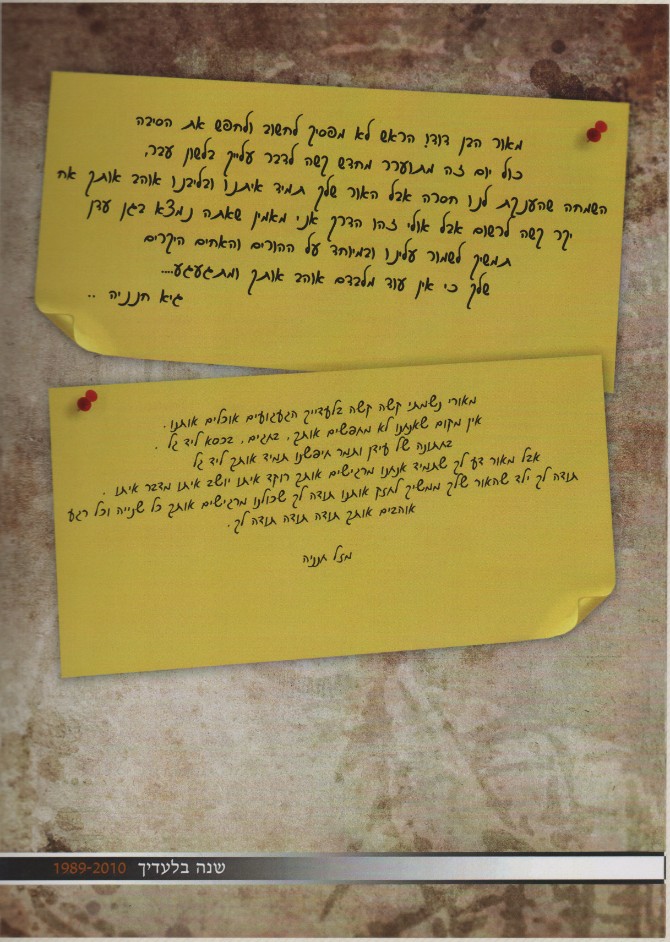 מאור הבן דוד! הראש לא מפסיק לחשוב ולחפש את הסיבה
כול יום זה מתעורר מחדש קשה לדבר עלייך בלשון עבר,
השמחה שהענקת לנו חסרה אבל האור שלך תמיד איתנו ובליבנו אוהב אותך אח
יקר קשה לרשום אבל אולי זהו הדרך אני מאמין שאתה נמצא בגן עדן
תמשיך לשמור עלינו ובמיוחד על ההורים והאחים היקרים
שלך כי אין עוד מלבדם אוהב אותך ומתגעגע....
גיא חנניה ..
מאורי נשמתי קשה קשה בלעדייך הגעגועים אוכלים אותנו.
אין מקום שאנחנו לא מחפשים אותך, בחגים, בכסא ליד גל.
בחתונה של עידן ותמר חיפשנו תמיד אותך ליד גל
אבל מאור דע לך שתמיד אנחנו מרגישים אותך רוקד איתו יושב איתו מדבר איתו.
תודה לך ילד שהאור שלך ממשיך לחזק אותנו תודה לך שכולנו מרגישים אותך כל שנייה וכל רגע
אוהבים אותך תודה תודה תודה לך.
מזל חנניה
שנה בלעדיך 1989-2010